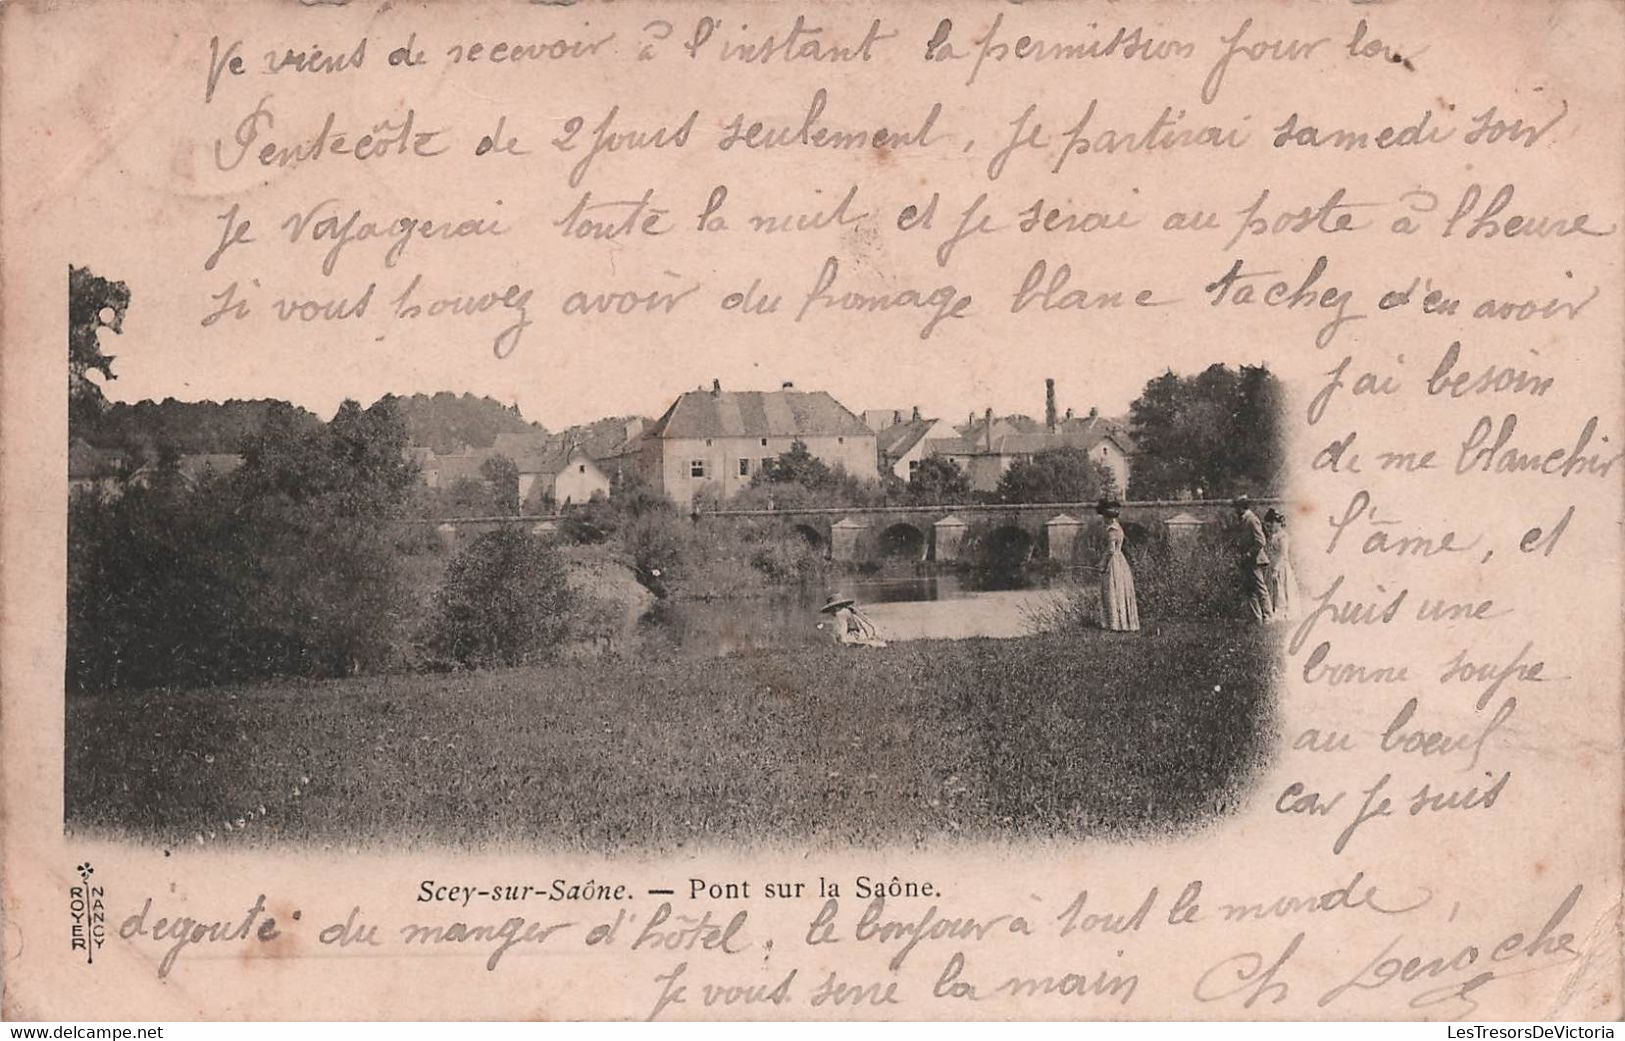 Je viens de recevoir à l'instant la permission pour la
Pentecôte de 2 jours seulement, je partirai samedi soir
je voyagerai toute la nuit et je serai au poste à l'heure
si vous pouvez avoir du fromage blanc tachez d'en avoir
j'ai besoin
de me blanchir
l'âme, et
puis une
bonne soupe
au boeuf
car je suis
Scey-sur-Saône. — Pont sur la Saône.
ROYER
NANCY
degouté du manger d'hôtel, le bonjour à tout le monde,
je vous serre la main Ch Deroche
LesTresorsDeVictoria